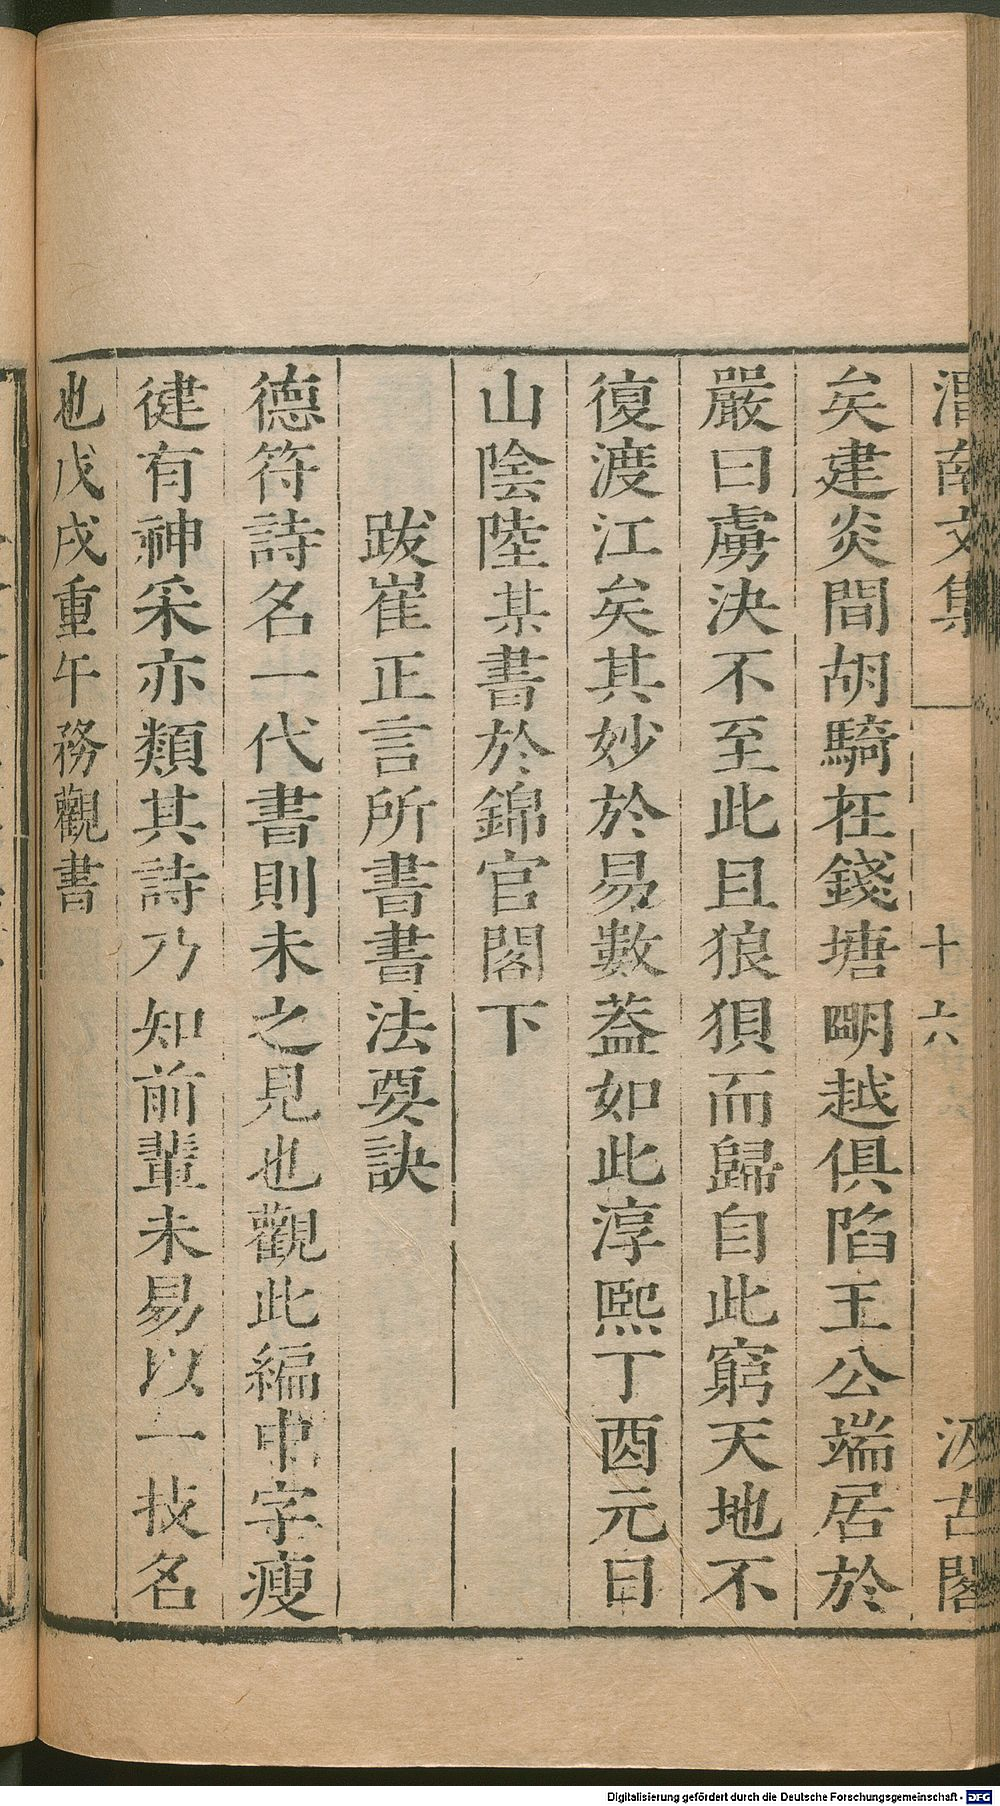 渭南文集 十六 汲古閣
矣建炎間胡騎在錢塘明越俱陷王公端居於
嚴曰虜決不至此且狼狽而歸自此窮天地不
復渡江矣其妙於易數蓋如此淳熙丁酉元日
山陰陸某書於錦官閣下
跋崔正言所書書法要訣
德符詩名一代書則未之見也觀此編中字瘦
健有神采亦類其詩乃知前輩未易以一技名
也戊戌重午務觀書
Digitalisierung gefördert durch die Deutsche Forschungsgemeinschaft - DFG